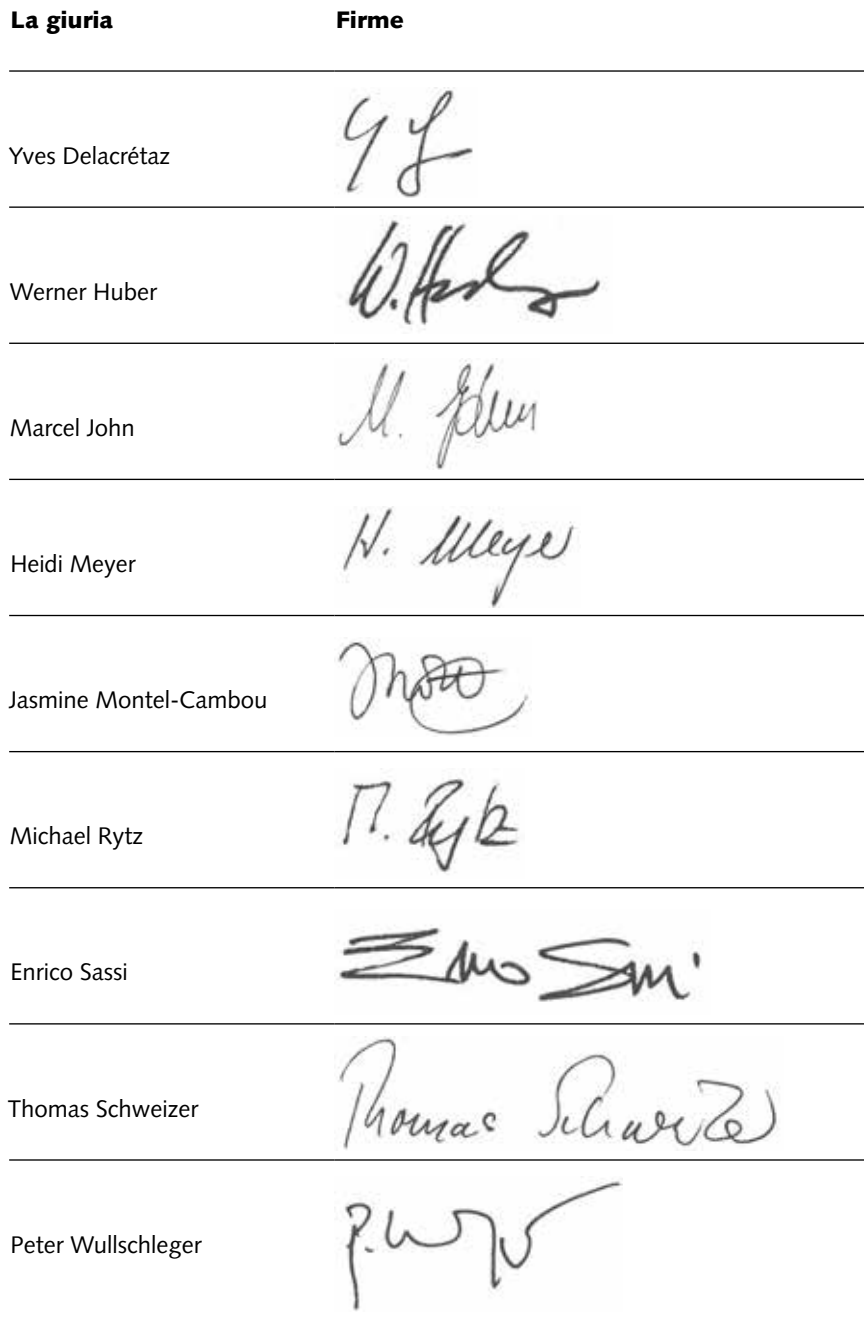 La giuria Firme
Yves Delacrétaz
Werner Huber W. Huber
Marcel John M. John
Heidi Meyer H. Meyer
Jasmine Montel-Cambou
Michael Rytz M. Rytz
Enrico Sassi
Thomas Schweizer Thomas Schweizer
Peter Wullschleger